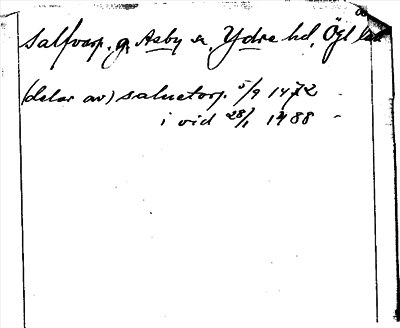 Salfvarp. g. Asby sn, Ydre hd, Ögl län
(delar av) saluetorp. 5/9 1472 -
i vid 28/1 1488 -